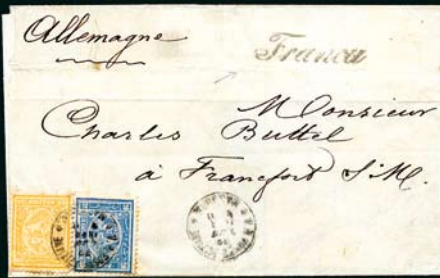 Allemagne
Franca
Monsieur
Charles Buttel
à Francfort s/M.